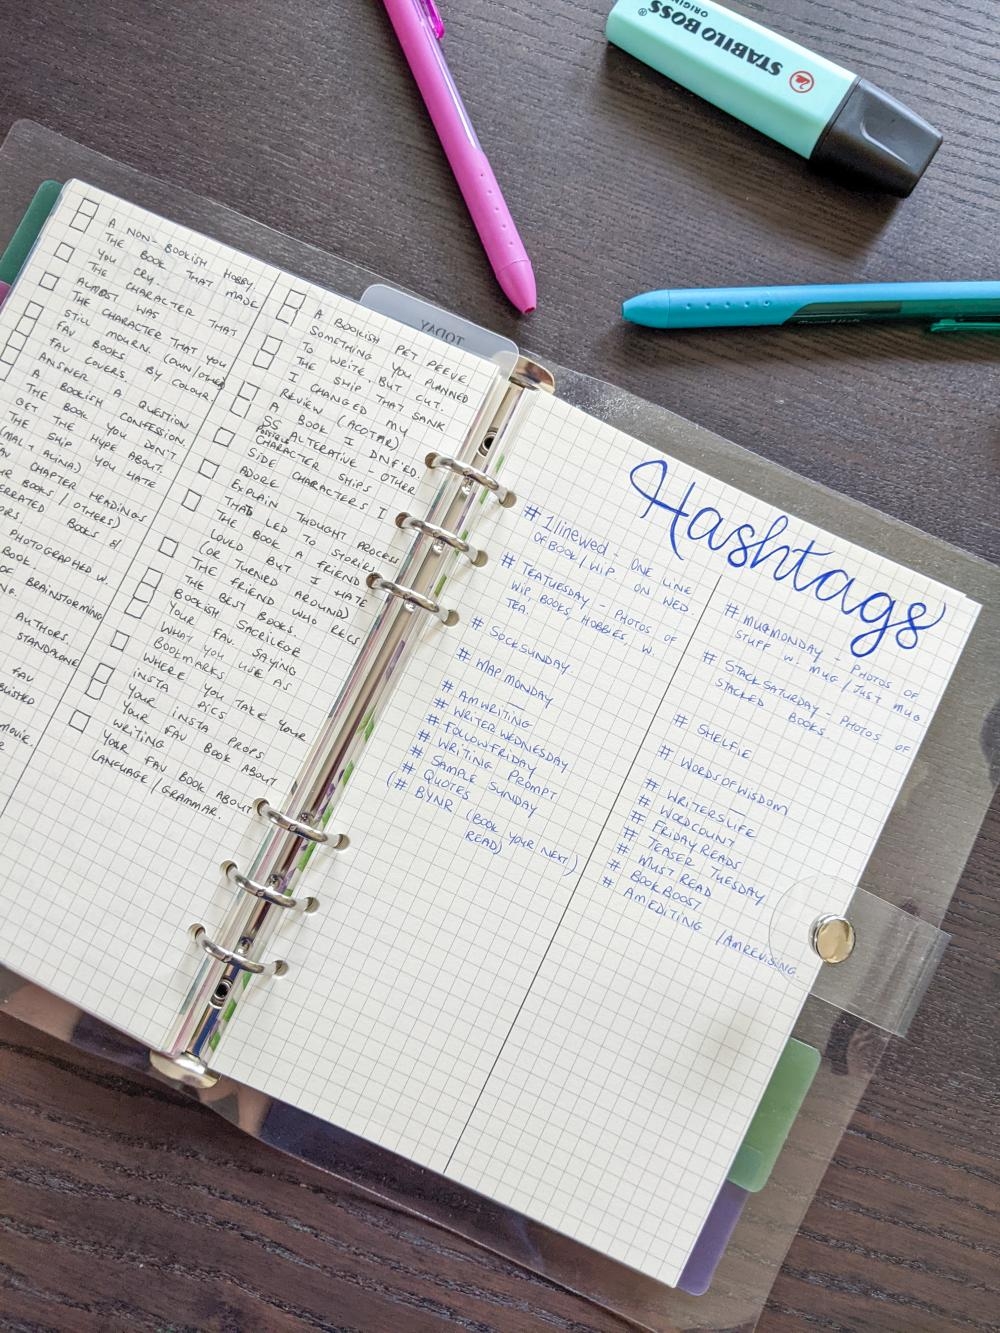 STABILO BOSS®
ORIGINAL
TODAY
A NON-BOOKISH HOBBY.
THE BOOK THAT MADE
YOU CRY.
THE CHARACTER THAT
ALMOST WAS
THE CHARACTER THAT YOU
STILL MOURN. (OWN/OTHER)
FAV BOOKS BY COLOUR.
FAV COVERS
ANSWER A QUESTION
A BOOKISH CONFESSION.
THE BOOK YOU DON'T
GET THE HYPE ABOUT.
THE SHIP YOU HATE
(MAL + ALINA)
CHAPTER HEADINGS
BOOKS / OTHERS)
BOOKS &
PHOTOGRAPHED W.
BOOK
OF BRAINSTORMING
AUTHORS.
STANDALONE
FAV
MOVIE.
A BOOKISH PET PEEVE
SOMETHING YOU PLANNED
TO WRITE, BUT CUT.
THE SHIP THAT SANK
I CHANGED MY
REVIEW (ACOTAR)
A BOOK I DNF'ED.
SS ALTERATIVE - OTHER
POSSIBLE
CHARACTER SHIPS
SIDE CHARACTERS I
ADORE
EXPLAIN THOUGHT PROCESS
THAT LED TO STORIES
THE BOOK A FRIEND
LOVED BUT I HATE
(OR TURNED AROUND)
THE FRIEND WHO RECS
THE BEST BOOKS.
BOOKISH SACRILEGE
YOUR FAV SAYING
WHAT YOU USE AS
BOOKMARKS
WHERE YOU TAKE YOUR
INSTA PICS
YOUR INSTA PROPS
YOUR FAV BOOK ABOUT
WRITING
YOUR FAV BOOK ABOUT
LANGUAGE / GRAMMAR.
Hashtags
# 1linewed - ONE LINE
OF BOOK/WIP ON WED.
# TEATUESDAY - PHOTOS OF
WIP, BOOKS, HOBBIES, W.
TEA.
# SOCKSUNDAY
# MAP MONDAY
# AMWRITING
# WRITERWEDNESDAY
# FOLLOWFRIDAY
# WRITING PROMPT
# SAMPLE SUNDAY
# QUOTES
(# BYNR (BOOK YOUR NEXT
READ)
# MUGMONDAY - PHOTOS OF
STUFF W/ MUG / JUST MUG
# STACKSATURDAY - PHOTOS OF
STACKED BOOKS.
# SHELFIE
# WORDSOFWISDOM
# WRITERSLIFE
# WORDCOUNT
# FRIDAYREADS
# TEASER TUESDAY
# MUSTREAD
# BOOKBOOST
# AMEDITING /AMREVISING.